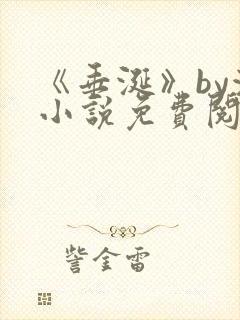 《垂涎》by
小说免費閱
訾金雷